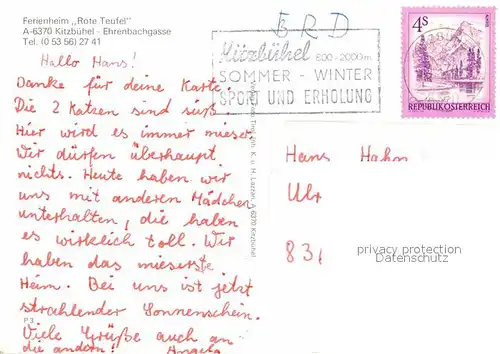 Ferienheim „Rote Teufel"
A-6370 Kitzbühel - Ehrenbachgasse
Tel. (0 53 56) 27 41
BRD
Kitzbühel 800-2000m
SOMMER - WINTER
SPORT UND ERHOLUNG
4S
REPUBLIK ÖSTERREICH
Hallo Hans!
Danke für deine Karte.
Die 2 Katzen sind süß.
Hier wird es immer mieser.
Wir dürfen überhaupt
nichts. Heute haben wir
uns mit anderen Mädchen
unterhalten, die haben
es wirklich toll. Wir
haben das mieserste
Heim. Bei uns ist jetzt
strahlender Sonnenschein.
Viele Grüße auch an
die andern! Angela
P 3
A 6370 Kitzbühel
Hans Hahn
Ulr
831
privacy protection
Datenschutz